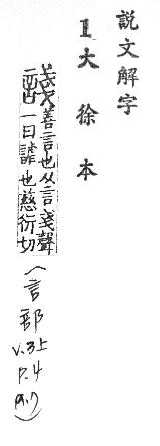 説文解字
1 大徐本
諓善言也从言戔聲
一曰謔也慈衍切
(言部 v.3上 p.4 (a.7)